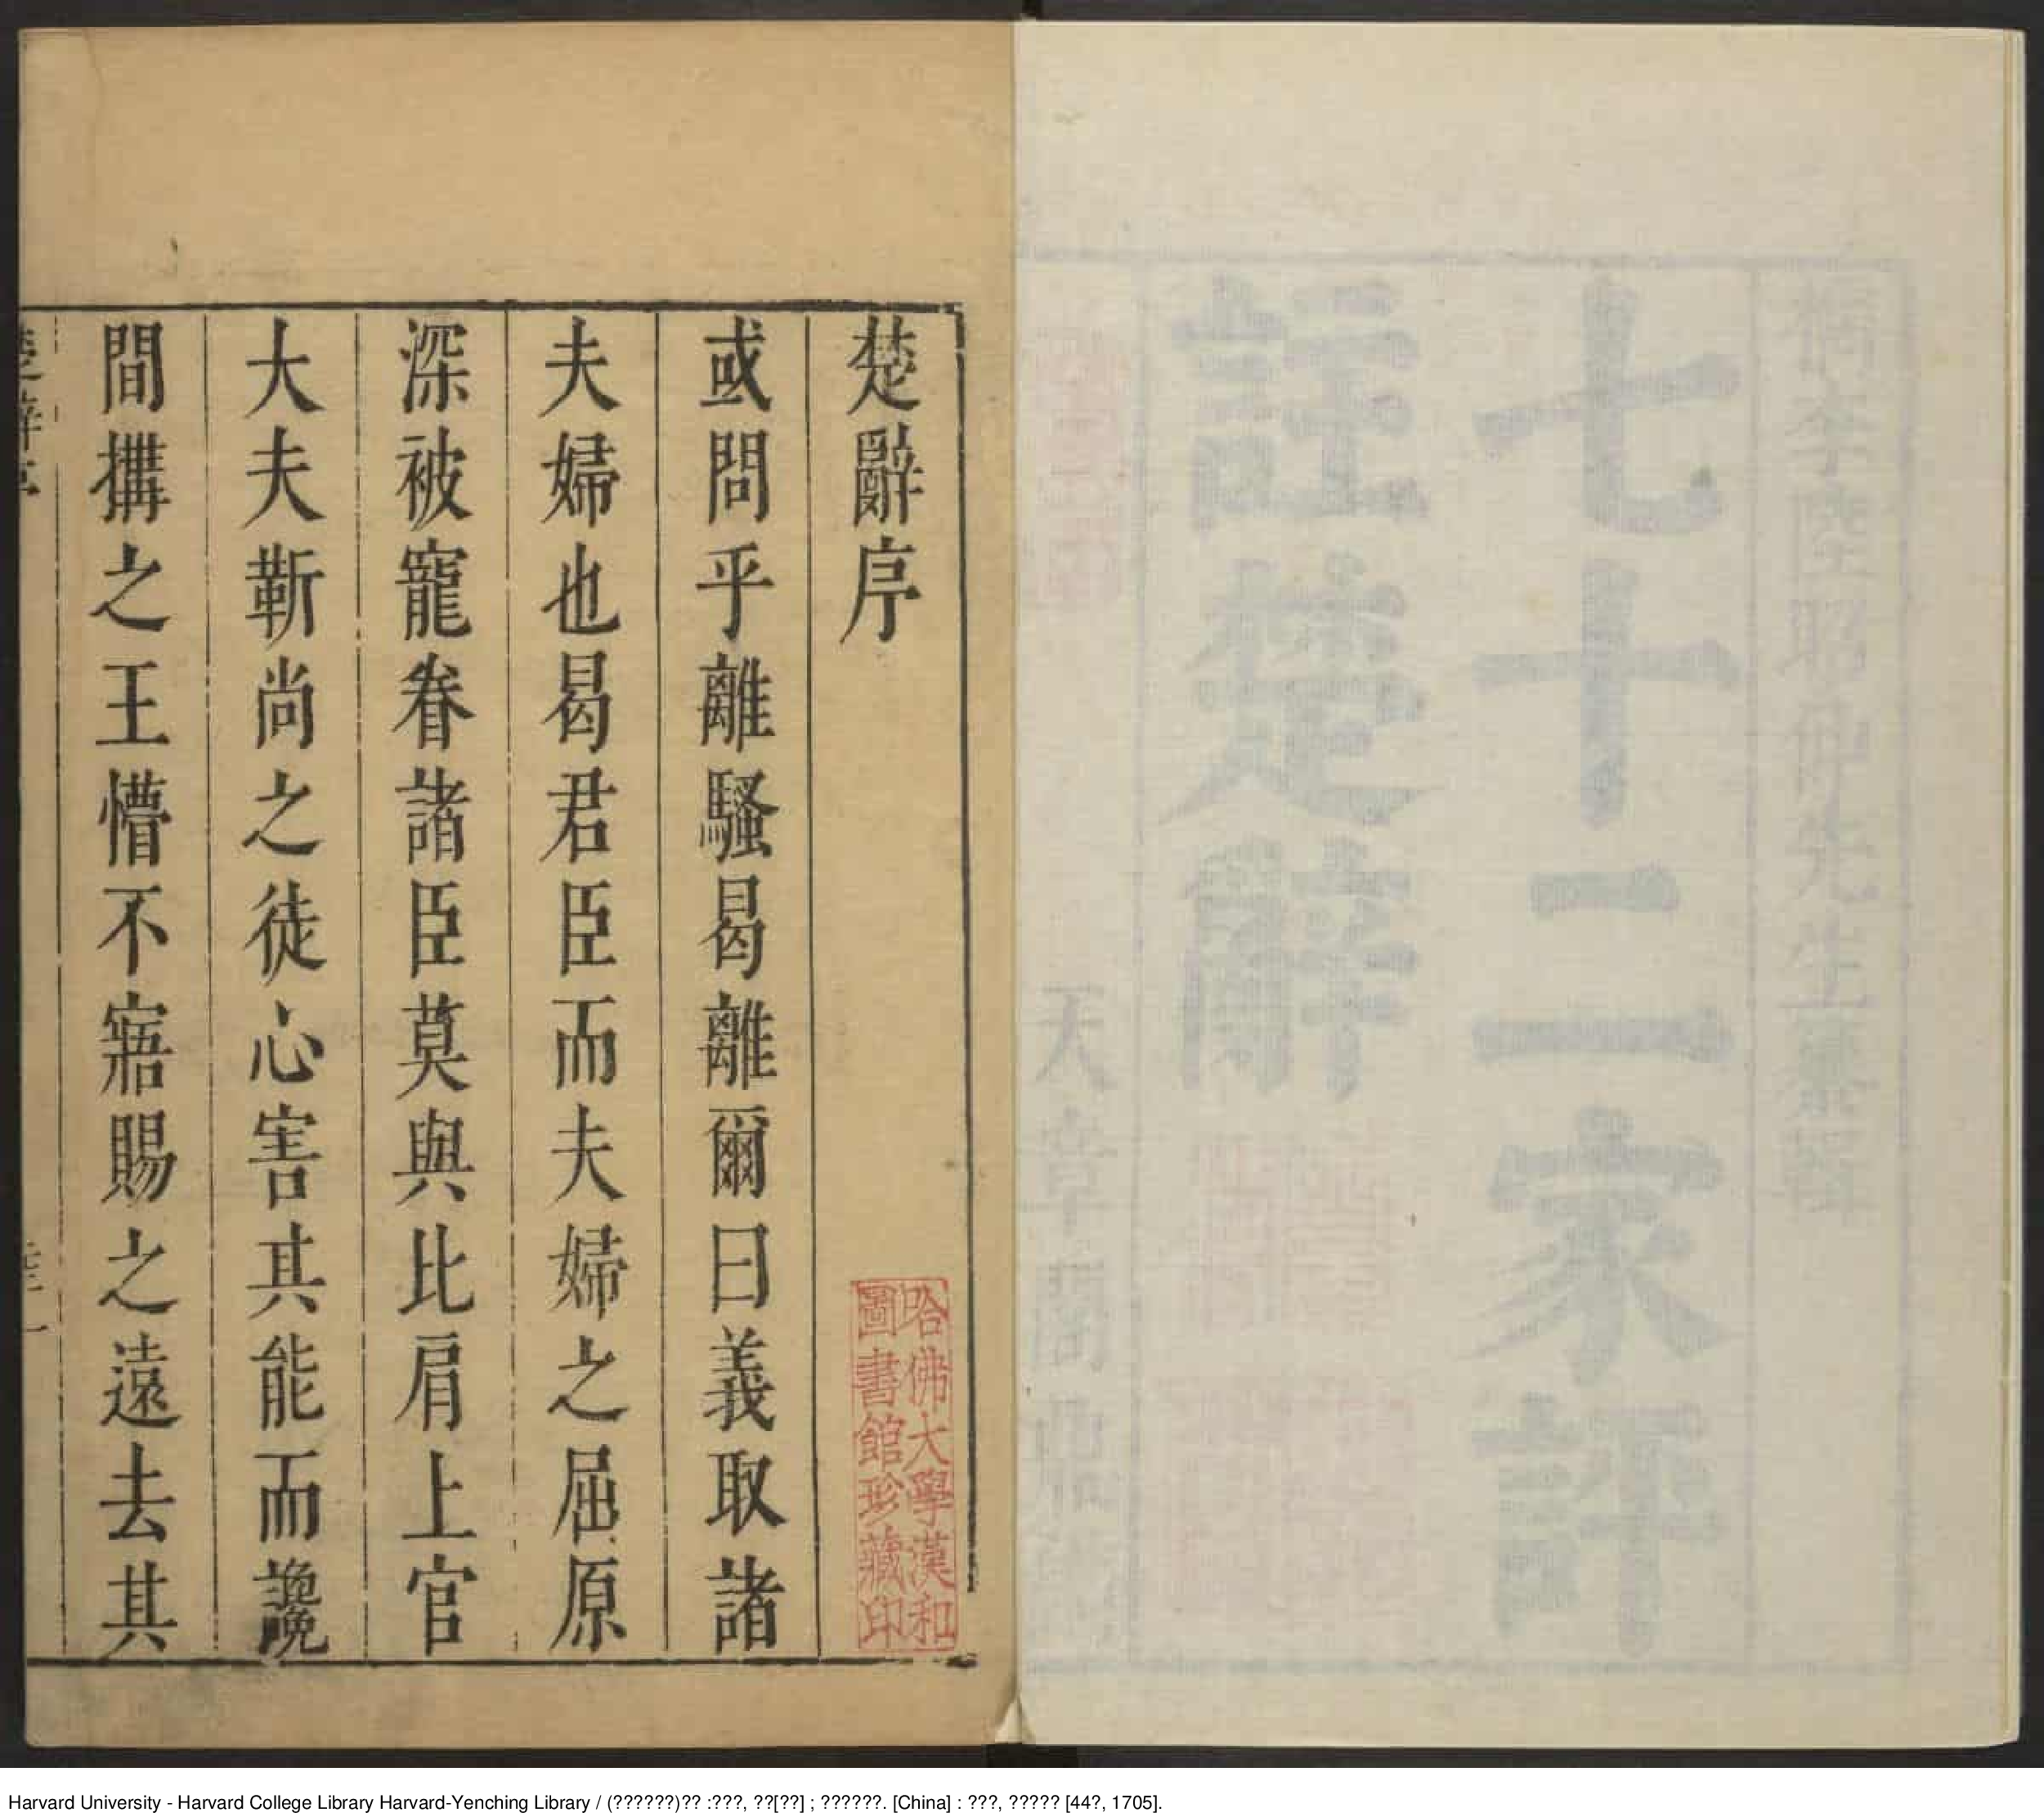 檇李陸昭仲先生纂輯
七十二家評
註楚辭
楚辭序
哈佛大學漢和
圖書館珍藏印
或問乎離騷曷離爾曰義取諸
夫婦也曷君臣而夫婦之屈原
深被寵眷諸臣莫與比肩上官
大夫靳尚之徒心害其能而讒
間搆之王懵不寤賜之遠去其
Harvard University - Harvard College Library Harvard-Yenching Library / (??????)?? :???, ??[??] ; ??????. [China] : ???, ????? [44?, 1705].